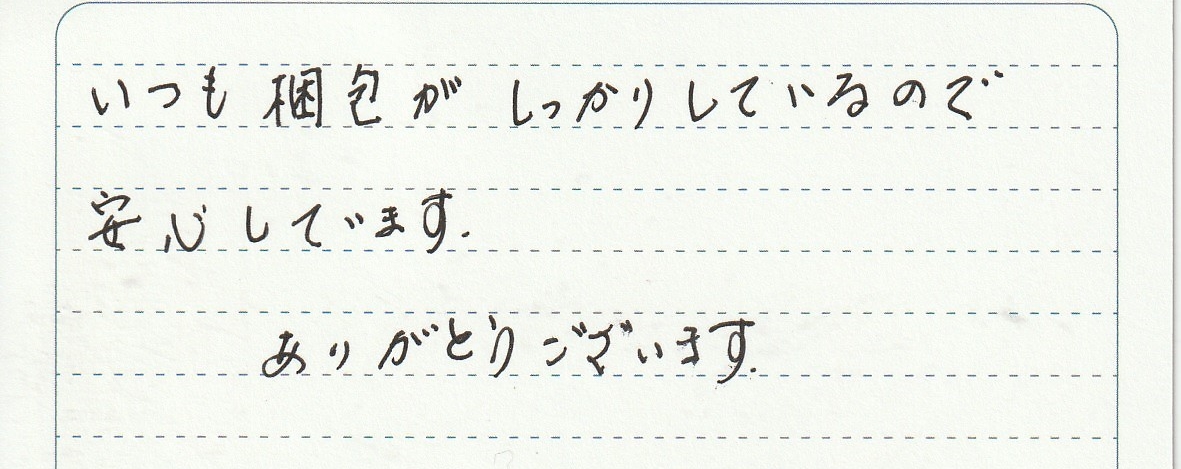 いつも梱包がしっかりしているので
安心しています.
ありがとうございます.